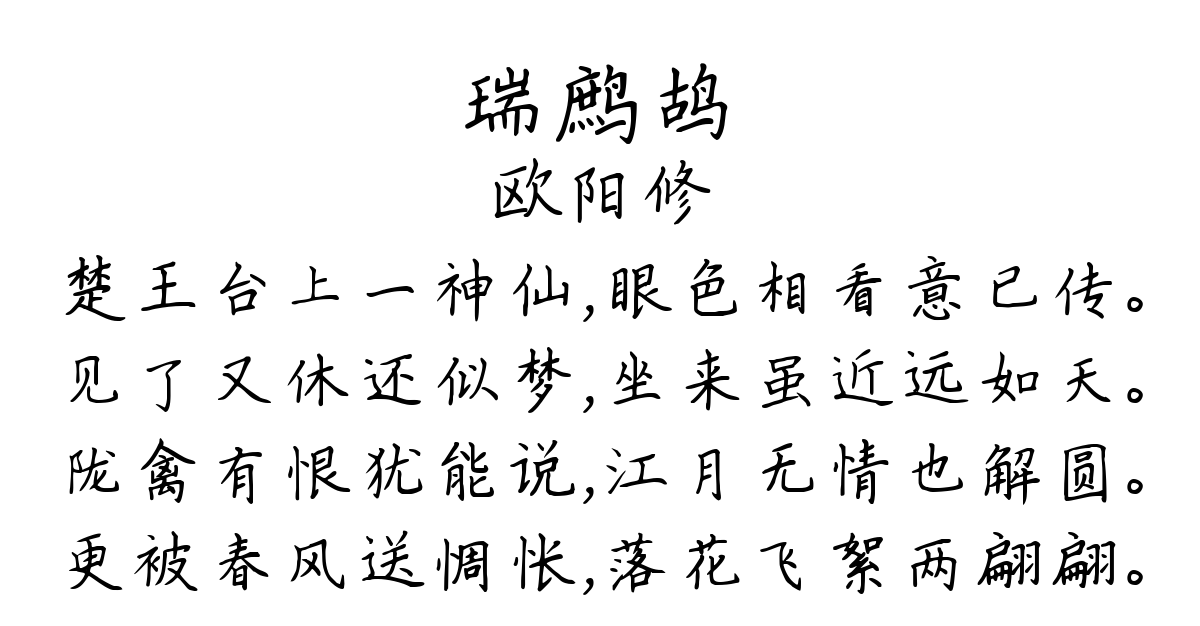 瑞鹧鸪
欧阳修
楚王台上一神仙,眼色相看意已传。
见了又休还似梦,坐来虽近远如天。
陇禽有恨犹能说,江月无情也解圆。
更被春风送惆怅,落花飞絮两翩翩。